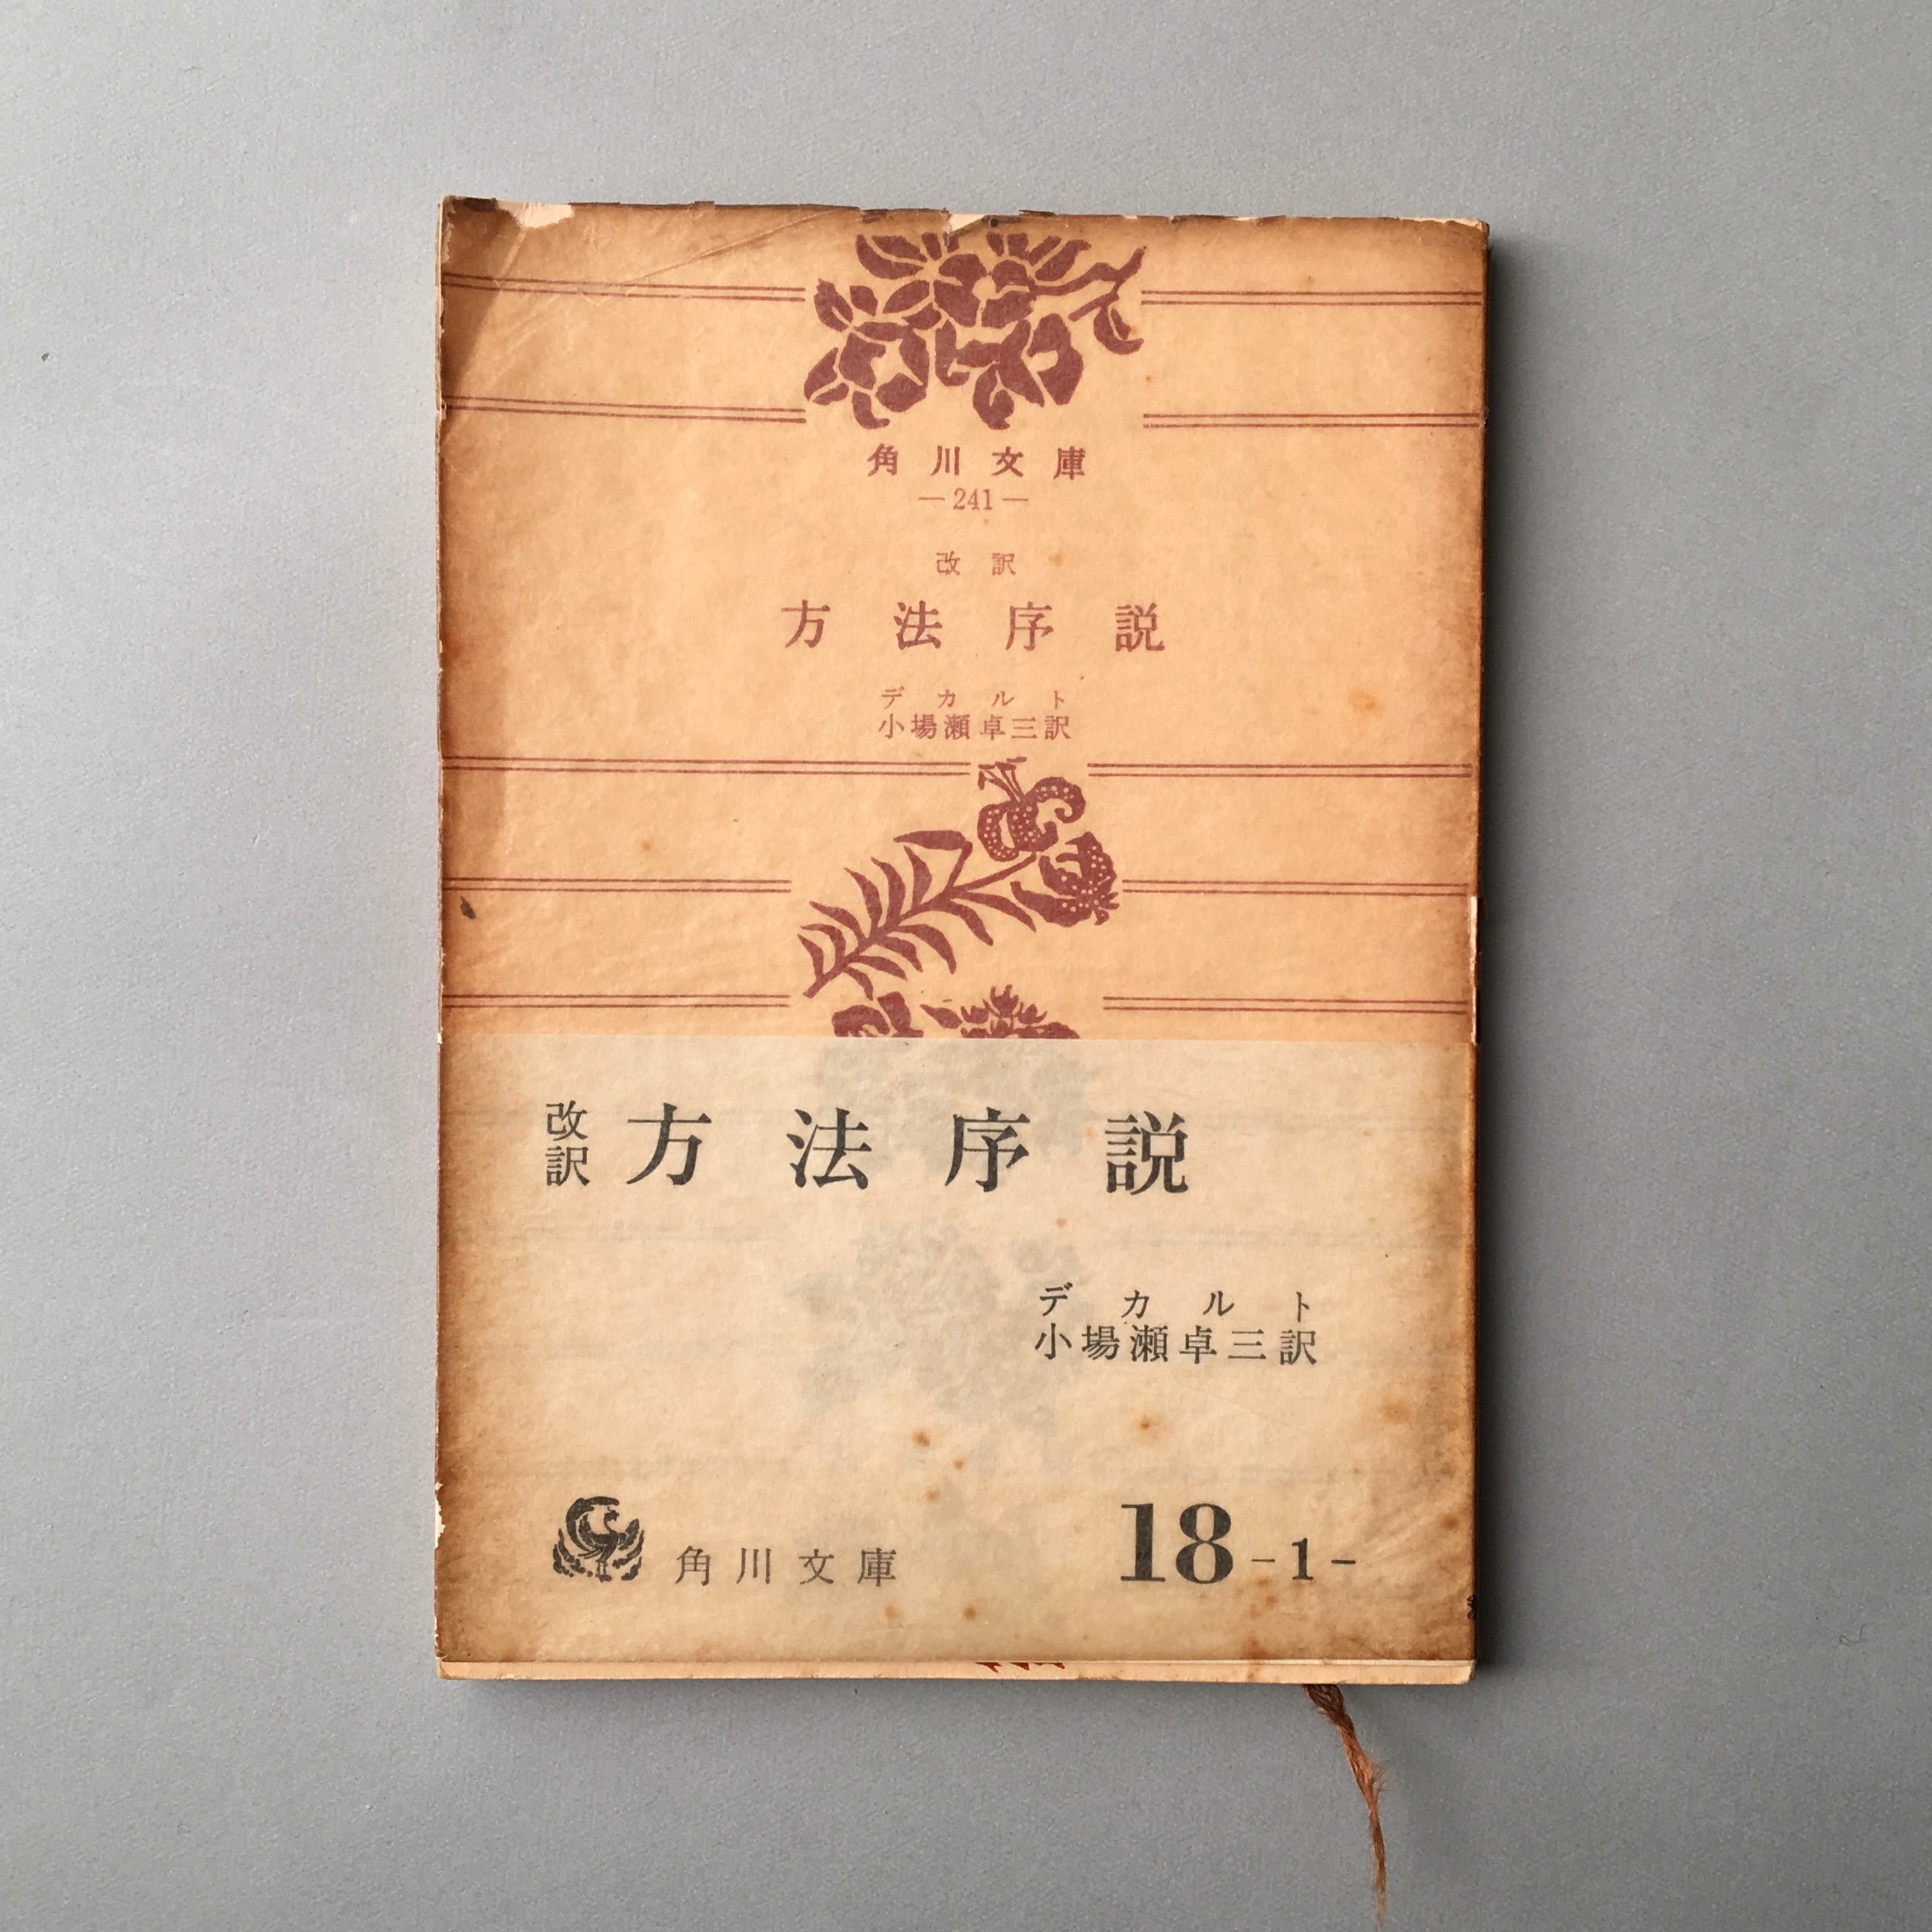 角川文庫
—241—
改訳
方法序説
デカルト
小場瀬卓三訳
改訳 方法序説
デカルト
小場瀬卓三訳
角川文庫 18-1-